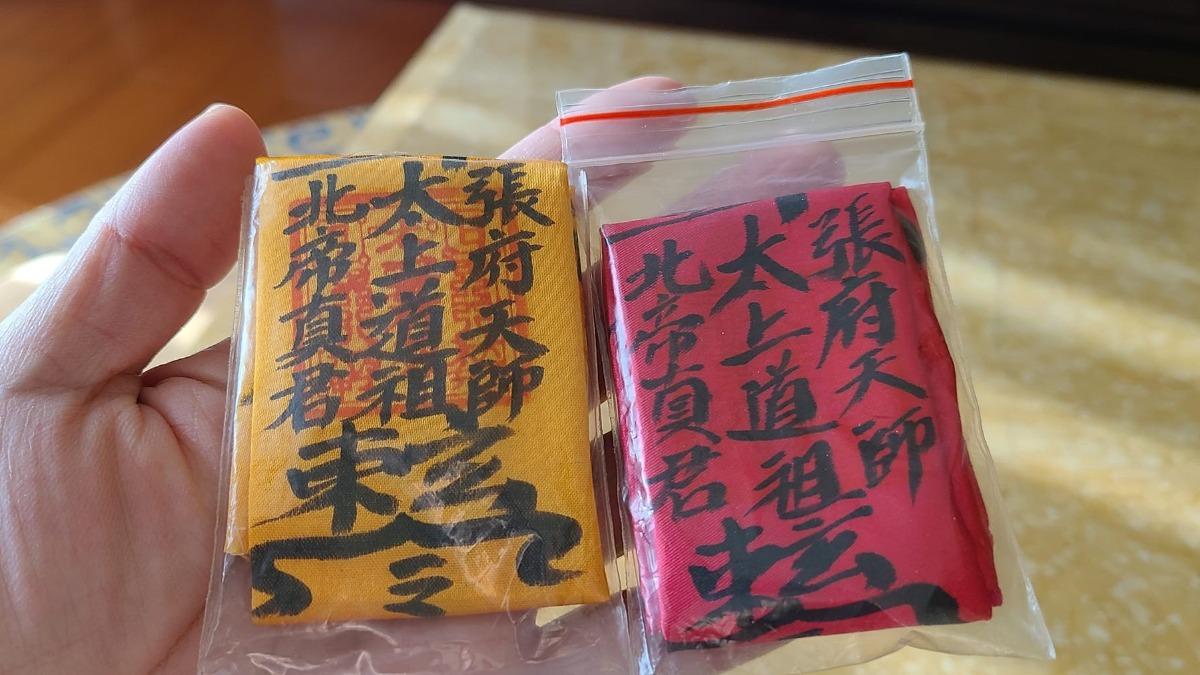 張府天師
太上道祖
北帝真君
玄
三
張府天師
太上道祖
北帝真君
玄